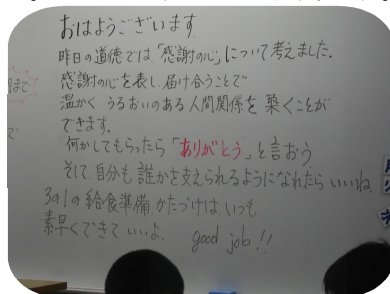 おはようございます
昨日の道徳では「感謝の心」について考えました。
感謝の心を表し、届け合うことで
温かく うるおいのある人間関係を築くことが
できます。
何かしてもらったら「ありがとう」と言おう
そして自分も誰かを支えられるようになれたらいいね
3の1の給食準備、かたづけは、いつも
素早くできていいよ. good job!!
まで
で